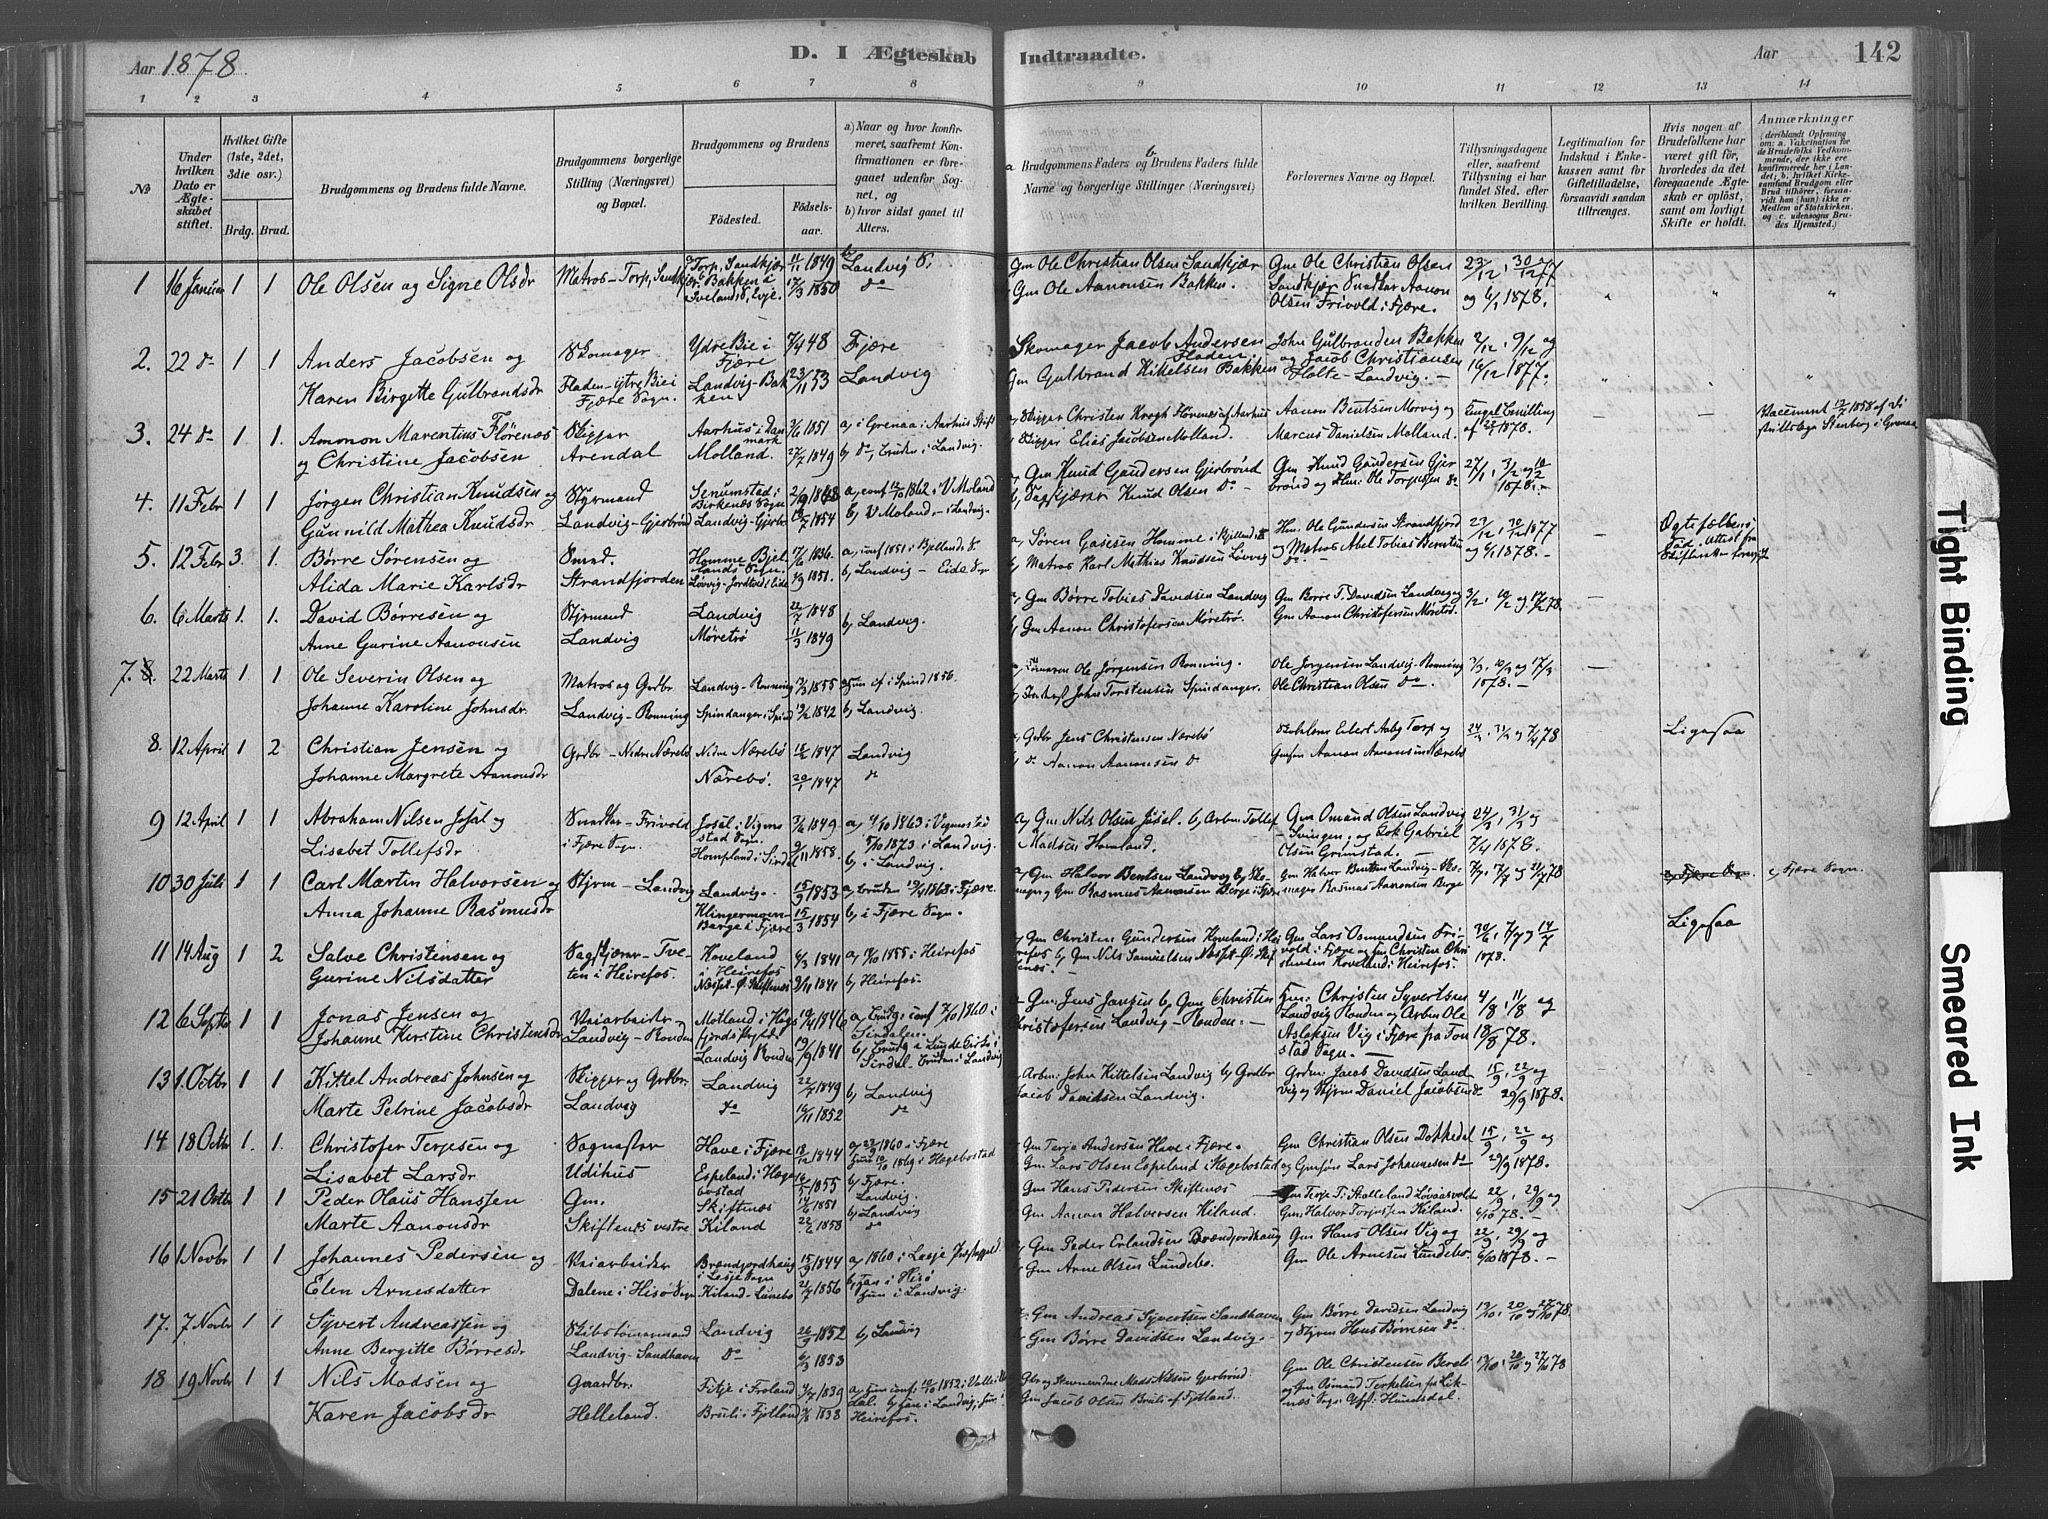 Aar 1878.
D. I Ægteskab Indtraadte.
Aar
142
1 2 3 4 5 6 7 8 9 10 11 12 13 14
No
Under hvilken Dato er Ægteskabet stiftet.
Hvilket Gifte (1ste, 2det, 3die osv.)
Brdg. Brud.
Brudgommens og Brudens fulde Navne.
Brudgommens borgerlige Stilling (Næringsvei) og Bopæl.
Brudgommens og Brudens
Fødested. Fødselsaar.
a) Naar og hvor konfirmeret, saafremt Konfirmationen er foregaaet udenfor Sognet, og
b) hvor sidst gaaet til Alters.
a Brudgommens Faders og b Brudens Faders fulde Navne og borgerlige Stillinger (Næringsvei)
Forlovernes Navne og Bopæl.
Tillysningsdagene eller, saafremt Tillysning ei har fundet Sted, efter hvilken Bevilling.
Legitimation for Indskud i Enkekassen samt for Giftetilladelse, forsaavidt saadan tiltrænges.
Hvis nogen af Brudefolkene har været gift før, hvorledes da det foregaaende Ægteskab er opløst, samt om lovligt Skifte er holdt.
Anmærkninger (deriblandt Oplysning om: a. Vakcination for de Brudefolks Vedkommende, der ikke ere konfirmerede her i Landet; b. hvilket Kirkesamfund Brudgom eller Brud tilhører, forsaavidt han (hun) ikke er Medlem af Statskirken, og c. udensogns Brudes Hjemsted.
1 16 Januar 1 1 Ole Olsen og Signe Olsdr
Matros - Torp, Sandkjær
Torp, Sandkjær 11/11 1849
Bakken i Ivelands S. Evje 17/3 1850
b, Landvig S.
do
Gm Ole Christian Olsen Sandkjær
Gm Ole Aanonsen Bakken.
Gm Ole Christian Olsen Sandkjær Snedker Aanon Olsen Frivold i Fjære.
23/12, 30/12 77 og 6/1 1878.
2. 22 do 1 1 Anders Jacobsen og
Karen Birgitte Gulbrandsdr
Skomager
Fladen - ytre Bie i Fjære Sogn.
Ydre Bie i Fjære 7/4 48
Landvig - Bakken 23/11 53
Fjære
Landvig
Skomager Jacob Andersen Fladen
Gm Gulbrand Kittelsen Bakken
John Gulbrandsen Bakken og Jacob Christiansen Holte - Landvig.
2/12, 9/12 og 16/12 1877.
3. 24 do 1 1. Amonon Marentius Flörenæs
og Christine Jacobsen
Skipper
Arendal
Aarhus i Danmark 3/6 1851
Molland. 27/7 1849
a, i Grenaa i Aarhus Stift
b, do, Bruden i Landvig.
a, Skipper Christen Krogh Flörenes af Aarhus
b, Skipper Elias Jacobsen Molland.
Aanon Bentsen Morvig og
Marcus Danielsen Molland.
Kongel. Bevilling af 22/1 1878.
Vaccineret 12/7 1858 af Distriktslæge Stenberg i Grenaa
4. 11 Febr 1 1 Jørgen Christian Knudsen og
Gunnild Mathea Knudsdr
Styrmand
Landvig - Gjerbrønd
Senumstad i Birkenæs Sogn 2/9 1848
Landvig - Gjerbr. 19/7 1854
a, conf 12/10 1862 i V. Moland
b, V. Moland - i Landvig.
a, Gm Knud Gundersen Gjerbrønd
b, Sagskjærer Knud Olsen do
Gm Knud Gundersen Gjerbrønd og Hm. Ole Torjussen do
27/1, 3/2 og 10/2 1878.
5. 12 Febr 3. 1. Børre Sørensen og
Alida Marie Karlsdr
Smed.
Strandfjorden
Homme Bjellands Sogn. 17/6 1836
Lövvig - Eide 4/9 1851.
a, conf 1851 i Bjellands S.
b, Landvig - Eide Sogn
a, Søren Gasesen Homme i Bjelland S
b, Matros Karl Mathias Knudsen Lövvig
Hm. Ole Gundersen Strandfjord og Matros Abel Tobias Berntsen do.
23/12, 30/12 1877 og 6/1 1878.
Ægtefællen død. Attest fra Skifteretten forevist
6. 6 Marts 1. 1. David Børresen og
Anne Gurine Aanonsen
Styrmand
Landvig
Landvig 22/7 1848
Møretrø 11/3 1849
b, Landvig.
a, Gm Børre Tobias Davidsen Landvig
b, Gm Aanon Christofersen Møretrø.
Gm Børre T. Davidsen Landvig og
Gm Aanon Christofersen Møretrø.
3/2, 10/2 og 17/2 78.
7. 22 Marts 1 1 Ole Severin Olsen og
Johanne Karoline Johnsdr.
Matros og Grdbr
Landvig - Rønning
Landvig - Rønning 7/3 1855
Spindanger i Spind 19/2 1842
a, Hun cf. i Spind 1856.
b, Landvig
a, Tømrm Ole Jørgensen Rønning.
John Torstensen Spindanger.
Ole Jørgensen Landvig - Rønning
Ole Christian Olsen do.
3/3, 10/3 og 17/3 1878.
8. 12 April 1 2 Christian Jensen og
Johanne Margrete Aanonsdr
Grdbr - Nedre Nærebö
Nedre Nærebö 18/2 1847
Nærebö. 20/1 1847
Landvig
do
a, Grdbr Jens Christensen Nærebö
b, do Aanon Aanonsen do
Skolel. Eilert Aaby Torp og
Gmsøn Aanon Aanonsen Nærebö
24/3, 31/3 og 7/4 78
Ligesaa
9 12 April 1 1 Abraham Nilsen Josal og
Lisabet Tollefsdr
Snedker - Frivold
i Fjære Sogn.
Josal i Vigmostad Sogn. 3/6 1849
Hompland i Sirdal 9/11 1858.
a, 4/10 1863 i Vegmostad
5/10 1873 i Landvig.
b, i Landvig.
a, Gm Nils Olsen Josal. b, Arbm Tollef
Madsen Homland.
Gm Omund Olsen Landvig - Svingen, og Gabriel Olsen Grimstad.
24/3, 31/3 7/4 1878.
10 30 Juli 1 1 Carl Martin Halvorsen og
Anna Johanne Rasmusdr
Styrm - Landvig
Landvig - Klingermoen 15/9 1853
Barge i Fjære 15/3 1854
a, Bruden 1868 i Fjære.
b, i Fjære Sogn.
a, Gm Halvor Bentsen Landvig b, Skomager og Gm Rasmus Aanonsen Berge i Fjære
Gm Halvor Bentsen Landvig - Skomager Rasmus Aanonsen Berge
7/7, 17/7 og 21/7 78
c, Fjære Sogn.
11 14 Aug 1 2 Salve Christensen og
Gurine Nilsdatter
Sagskjærer - Tveten i Heirefos.
Hoveland i Heirefos 6/3 1841
Næsset - Ø. Skiftenes 9/11 1841
a, 14/10 1855 i Heirefos
b, Heirefos.
a, Gm Christen Gundersen Hoveland i Heirefos b, Gm Nils Samuelsen Næsset Ø. Skiftenæs
Gm Lars Osmundsen Frivold i Fjære og Gm Christen Christensen Hoveland i Heirefos.
30/6, 7/7 og 14/7 1878.
Ligesaa
12 6 Septbr 1 1 Jonas Jensen og
Johanne Kirstine Christensdr
Veiarbeider
Landvig - Ronden
Motland i Hægs
10/4 1846
Landvig Ronden 19/9 1841
a, Brudg. conf 7/10 1860 i Sirdalen.
b, Brudg i Lunde Kirke i Sirdal. Bruden i Landvig
a, Gm Jens Jansen b, Gm Christen
Christofersen Landvig - Ronden.
Gm: Christen Syvertsen Landvig Ronden og Arbm Ole Aslaksen Vig i Fjære
4/8, 11/8 og 18/8 78.
13 1. Octbr 1 1 Kittel Andreas Johnsen og
Marte Petrine Jacobsdr
Skipper og Grdbr.
Landvig
Landvig 22/7 1849
do 16/11 1852
b, Landvig
do
a, Arbm. John Kittelsen Landvig b, Grdbr
Jacob Davidsen Landvig.
Grdm. Jacob Davidsen Landvig og Styrm Daniel Jacobsen do
15/9, 22/9 og 29/9 1878.
14 18 Octbr 1. 1. Christofer Terjesen og
Lisabet Larsdr
Udihus
Have i Fjære 18/12 1844
Espeland i Hægebostad 16/5 1855
a, 23/9 1860 i Fjære
Hun 10/10 1869 i Hægebostad
b, Fjære.
Landvig.
Gm Terje Andersen Have i Fjære.
Gm. Lars Olsen Espeland i Hægebostad
Gm Christian Olsen Dokkedal
og Gmsøn Lars Johannesen do
15/9, 22/9 og 29/9 1878.
15 21 Octbr 1 1 Peder Olaus Hanssen
Marte Aanonsdr
Gm.
Skiftenes vestre
Skiftenæs 14/6 1851
Kiland 22/6 1858
b, Landvig
do
Gm Hans Pedersen Skiftenæs
Gm. Aanon Halversen Kiland.
Gm Terje T. Stalleland Løvaasvold
Gm. Halvor Torjussen Kiland.
22/9, 29/9 og 6/10 78.
16 1 Novbr 1 1 Johannes Pedersen og
Elen Arnesdatter
Veiarbeider
Dalene i Hisø Sogn
Brændjordhaug i Lesje Sogn 15/9 1844
Kiland - Lunebo 21/7 1856
a, 1860 i Lesje Præstegjeld
b, Han i Hisö
Hun i Landvig.
Gm Peder Erlandsen Brændjordhaug
Gm Arne Olsen Lundebo.
Gm Hans Olsen Vig og
Gm Ole Arnesen Lundebo
22/9, 29/9 6/10 1878.
17. 7 Novbr 1 1 Syvert Andreassen og
Anne Bergitte Børresdr
Skibstømmermand
Landvig - Sandhaven
Landvig 26/9 1852
do 6/3 1853
b, Landvig
a, Gm Andreas Syvertsen Sandhaven
b, Gm Børre Davidsen Landvig.
Gm Børre Davidsen Landvig
og Styrm Hans Børresen do
13/10, 20/10 og 27/10 78
18 19 Novbr 1 1 Nils Madsen og
Karen Jacobsdr
Gaardbr.
Helleland.
Fitje i Froland 3/7 1839
Bruli i Fjotland 1838
a, Hun conf. 10/10 1852 i
b, Han i Landvig, Hun i Heirefos
Mads Nilsen
Gm Jacob Olsen Bruli af Fjotland
Gm Ole Christensen
13/10, 20/10 og 27/10 78
Tight Binding
Smeared Ink